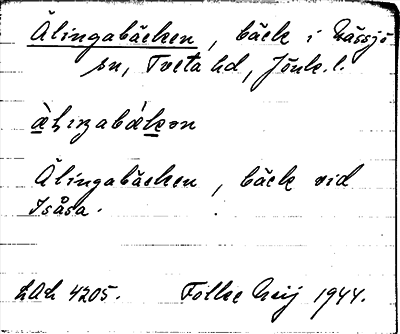 Älingabäcken, bäck i Nässjö
sn, Tveta hd, Jönk. l.
àliŋabäkən
Älingabäcken, bäck vid
Isåsa.
LAL 4205. Folke Meij 1944.